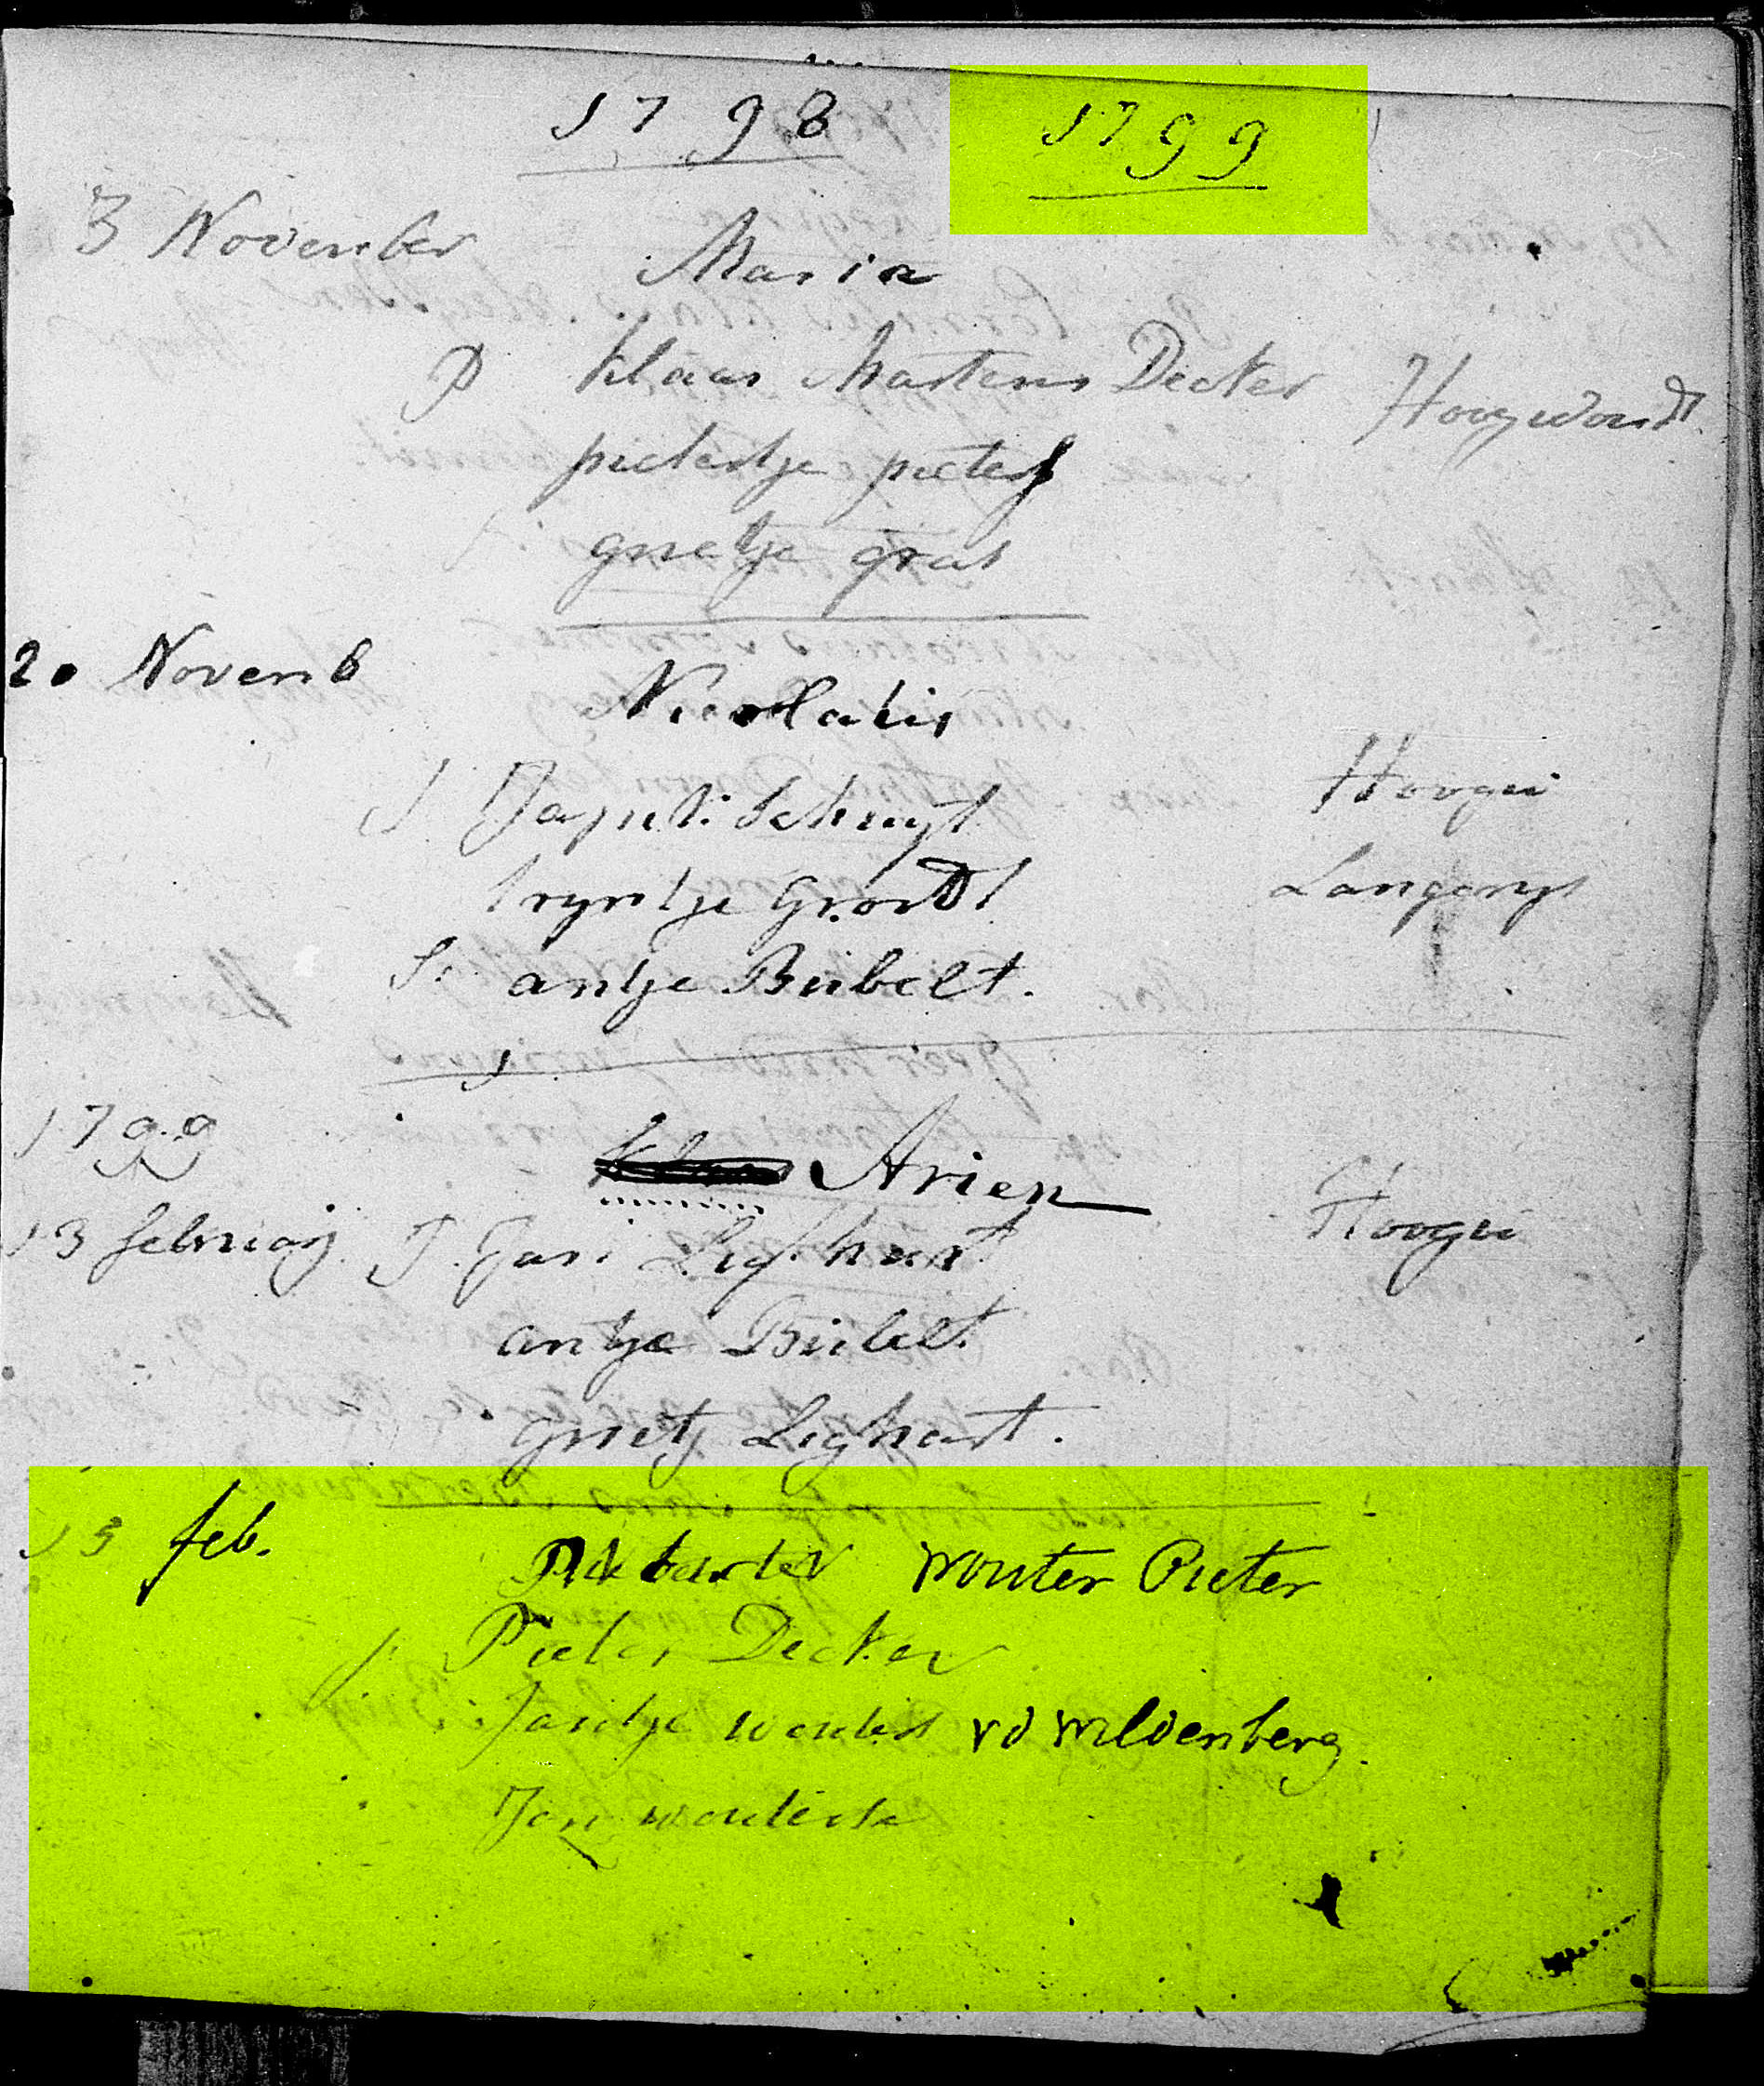 1798 1799
3 November Maria
P Klaas Martens Decker Hoogwoudt
pietertje pieters
grietje gras
20 Novemb Nicolaus
Schuyt Hoogw
tryntje Groodt Langerys
S. antje Bubelt.
1799
Arien
13 february P. Jan Lighart Hoogw
antje Bubelt
grietj Lighart.
13 feb. wouter Pieter
p Pieter Decker
Jantje wouters vd wildenberg
Jan wouters